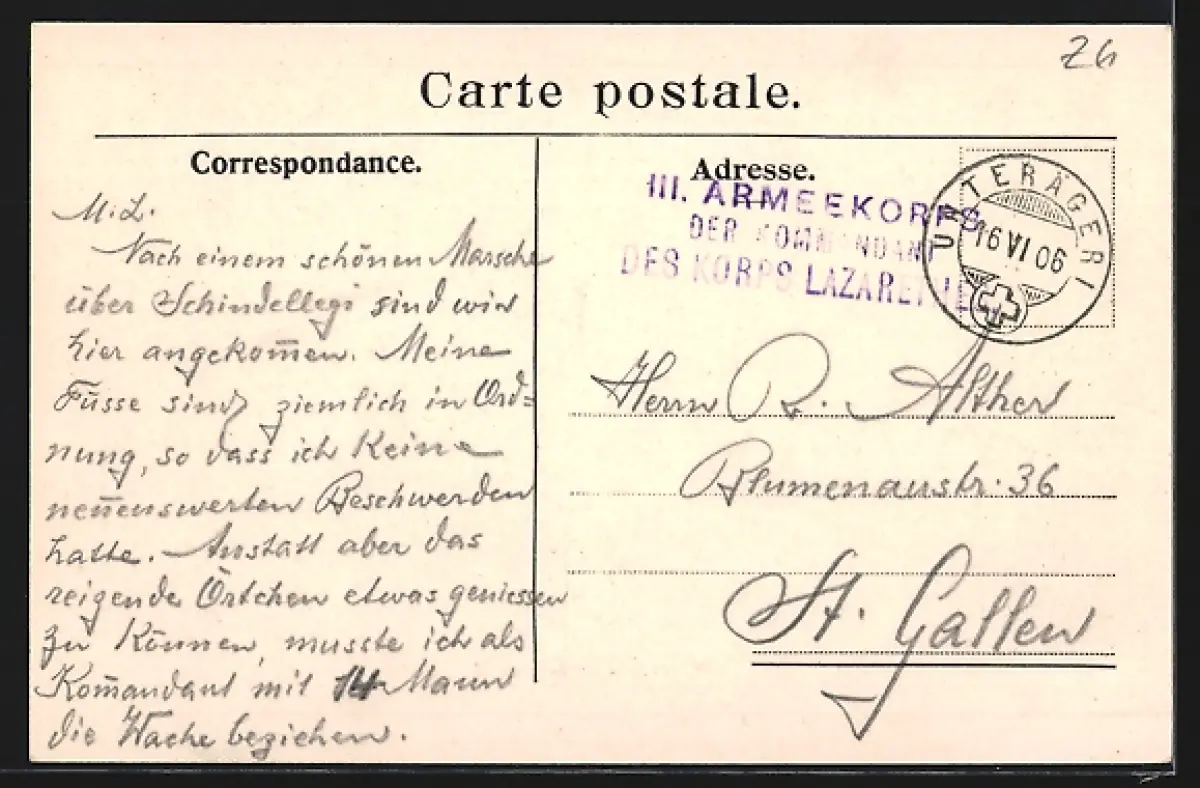 ZG
Carte postale.
Correspondance.
M. L.
Nach einem schönen Marsche
über Schindellegi sind wir
hier angekom̅en. Meine
Füsse sind ziemlich in Ord=
nung, so dass ich keine
nen̅enswerten Beschwerden
hatte. Anstatt aber das
reizende Örtchen etwas geniessen
zu können, musste ich als
Kom̅andant mit 14 Mann
die Wache beziehen.
Adresse.
III. ARMEEKORPS
DER KOMMANDANT
DES KORPS LAZARET II
UNTERÄGERI
16 VI 06
Herrn R. Alther
Blumenaustr. 36
St. Gallen